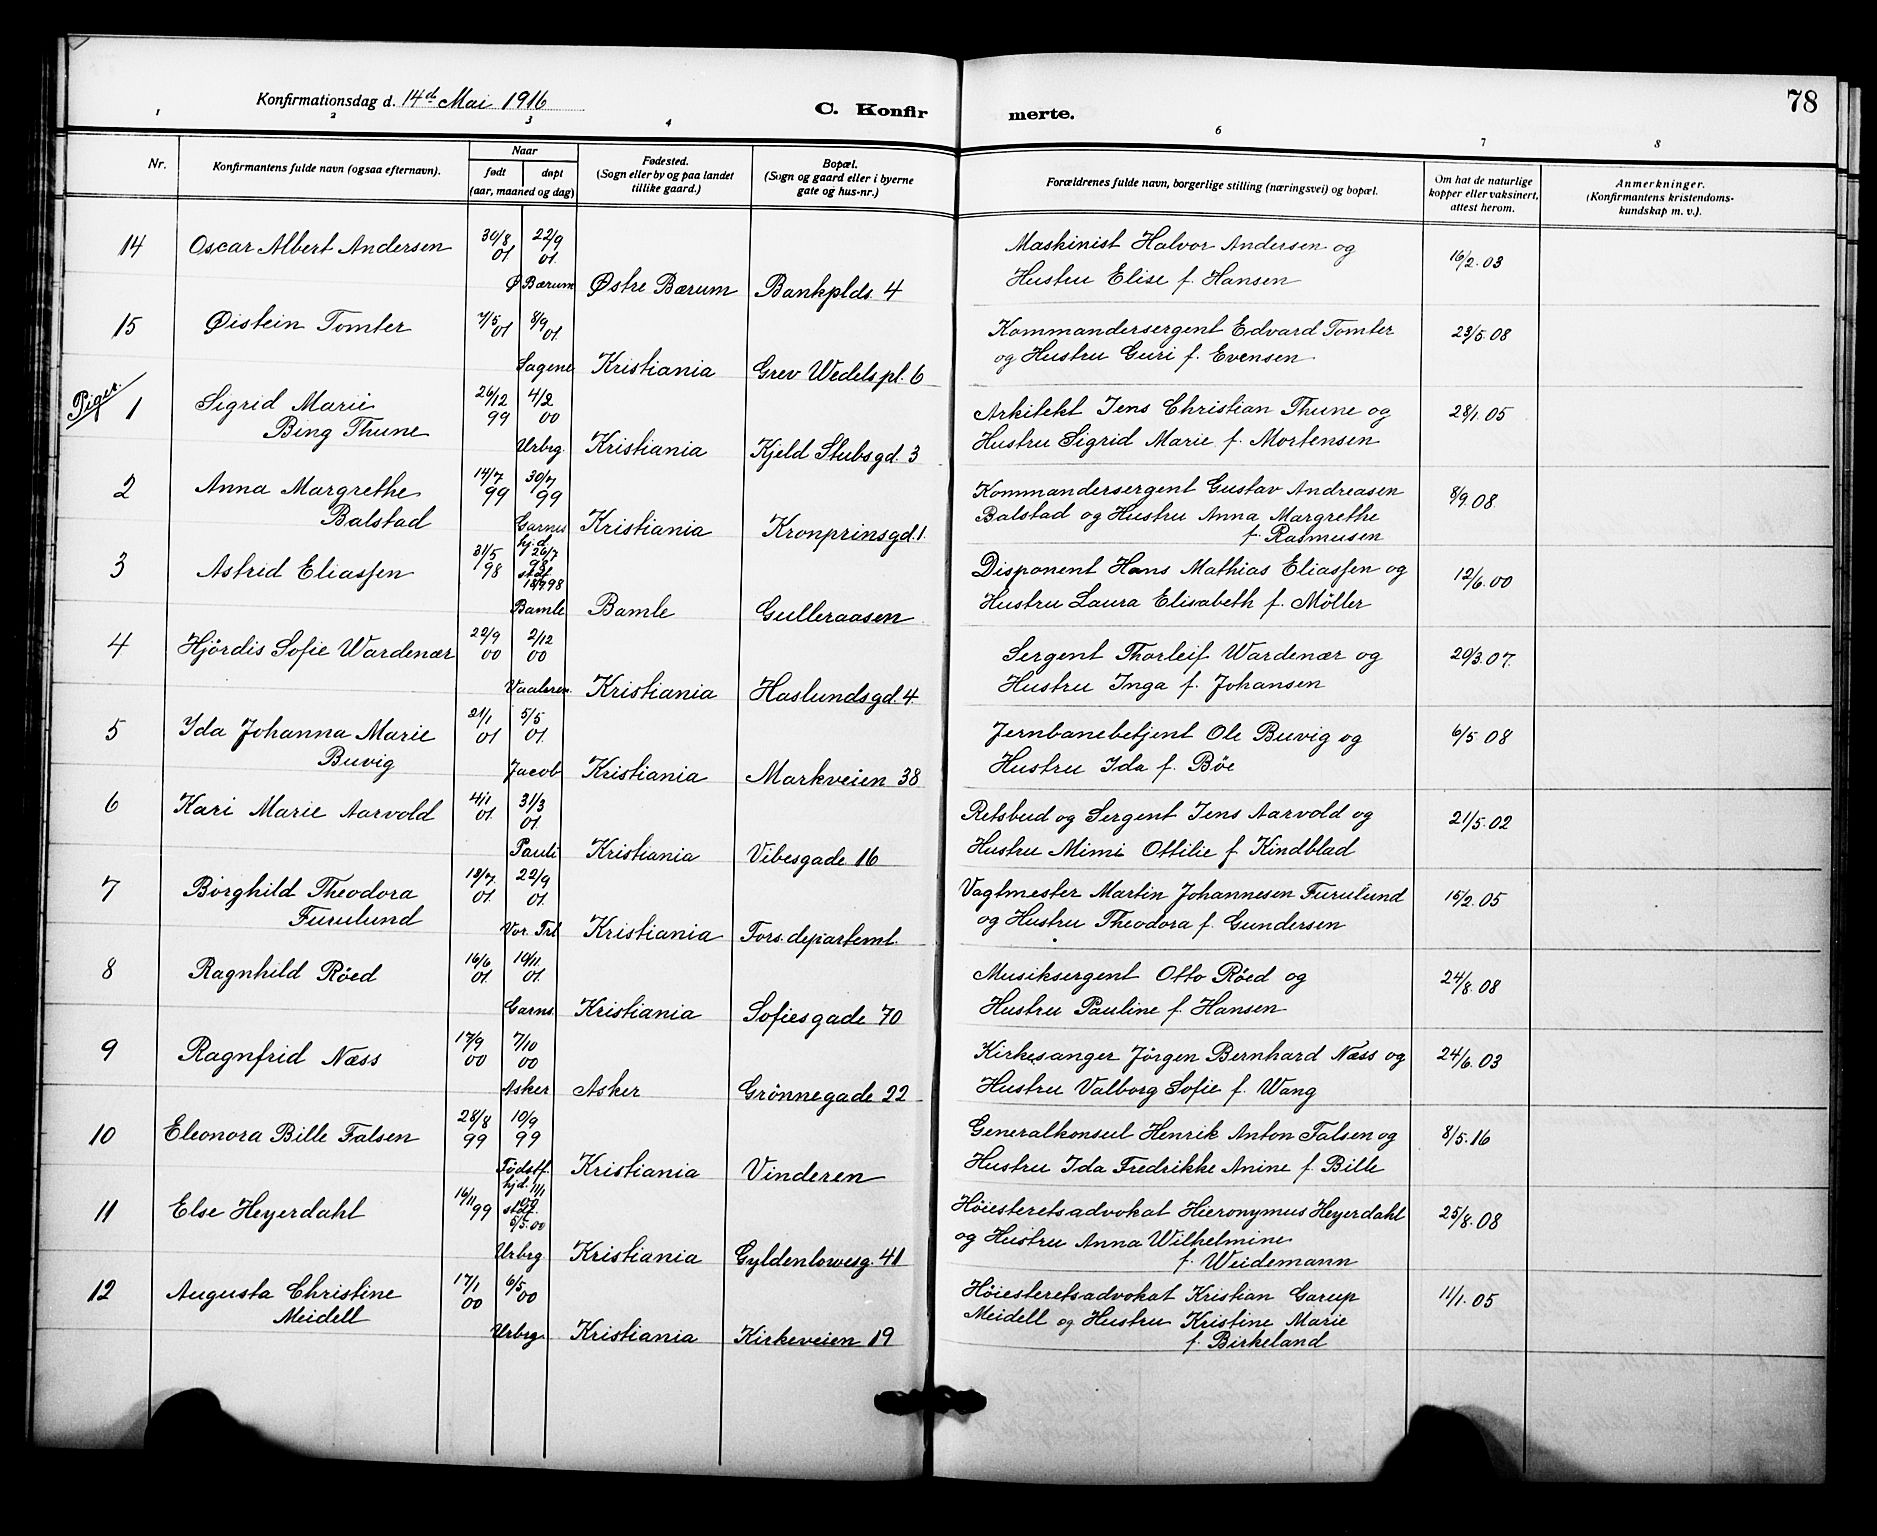 Konfirmationsdag d. 14d Mai 1916
C. Konfirmerte.
78
1 2 3 4 6 7 8
Nr.
Konfirmantens fulde navn (ogsaa efternavn).
Naar
født døpt
(aar, maaned og dag)
Fødested.
(Sogn eller by og paa landet
tillike gaard.)
Bopæl.
(Sogn og gaard eller i byerne
gate og hus-nr.)
Forældrenes fulde navn, borgerlige stilling (næringsvei) og bopæl.
Om hat de naturlige
kopper eller vaksinert,
attest herom.
Anmerkninger.
(Konfirmantens kristendoms-
kundskap m. v.).
14 Oscar Albert Andersen 30/8 01 22/9 01. Maskinist Halvor Andersen og 16/2.03
Ø Bærum Østre Bærum Bankplds. 4 Hustru Elise f. Hansen
15 Øistein Tomter 7/5 01 8/9 01. Kommandersergent Edvard Tomter 23/5.08
Sagene Kristiania Grev Wedels pl. 6 og Hustru Guri f. Evensen
Piger.
1 Sigrid Marie 26/12 99 4/2 00 Arkitekt Jens Christian Thune og 28/1.05
Bing Thune
Urbrg. Kristiania Kjeld Stubsgd. 3 Hustru Sigrid Marie f. Mortensen
2 Anna Margrethe 14/7 99 30/7 99 Kommandersergent Gustav Andreasen 8/9.08
Balstad Balstad og Hustru Anna Margrethe
Garnis Kristiania Kronprinsgd. 1. f. Rasmusen
3 Astrid Eliassen 31/5 98 hj.d. 26/7 98 stdf. 18/9 98 Disponent Hans Mathias Eliassen og 12/6.00
Bamle Bamle Gulleraasen Hustru Laura Elisabeth f. Møller
4 Hjördis Sofie Wardenær 22/9 00 2/12 00 Sergent Thorleif Wardenær og 20/3.07.
Vaaleren. Kristiania Haslundsgd. 4. Hustru Inga f. Johansen
5 Ida Johanna Marie 21/1 01 5/5 01. Jernbanebetjent Ole Buvig og 6/5.08
Buvig
Jacob Kristiania Markveien 38 Hustru Ida f. Bøe
6 Kari Marie Aarvold 4/1 01. 31/3 01. Retsbud og Sergent Jens Aarvold og 21/5.02
Pauli Kristiania Vibesgade 16 Hustru Mimi Ottilie f Kindblad
7 Borghild Theodora 13/7 01. 22/9 01. Vagtmester Martin Johannesen Furulund 15/2.05
Furulund
Vor. Frl Kristiania Fors. departemt. og Hustru Theodora f. Gundersen
8 Ragnhild Röed 16/6 01. 10/11 01. Musiksergent Otto Röed og 24/8.08
Garns. Kristiania Sofiesgade 70 Hustru Pauline f. Hansen
9 Ragnfrid Næss 17/9 00 7/10 00 Kirkesanger Jörgen Bernhard Næss og 24/6.03
Asker Asker Grönnegade 22 Hustru Valborg Sofie f. Wang
10 Eleonora Bille Falsen 28/8 99 10/9 99 Generalkonsul Henrik Anton Falsen og 8/5.16
Fødstf. Kristiania Vinderen Hustru Ida Fredrikke Anine f. Bille
11 Else Heyerdahl 16/11 99 hjd. 11/1 stdf. 6/5.00 Høiesteretsadvokat Hieronymus Heyerdahl 25/8.08
og Hustru Anna Wilhelmine
Urbrg Kristiania Gyldenlowesg. 41 f. Weidemann
12 Augusta Christine 17/1 00 6/5 00 Høiesteretsadvokat Kristian Garup 11/1.05
Meidell Meidell og Hustru Kristine Marie
Urbrg Kristiania Kirkeveien 19 f. Birkeland